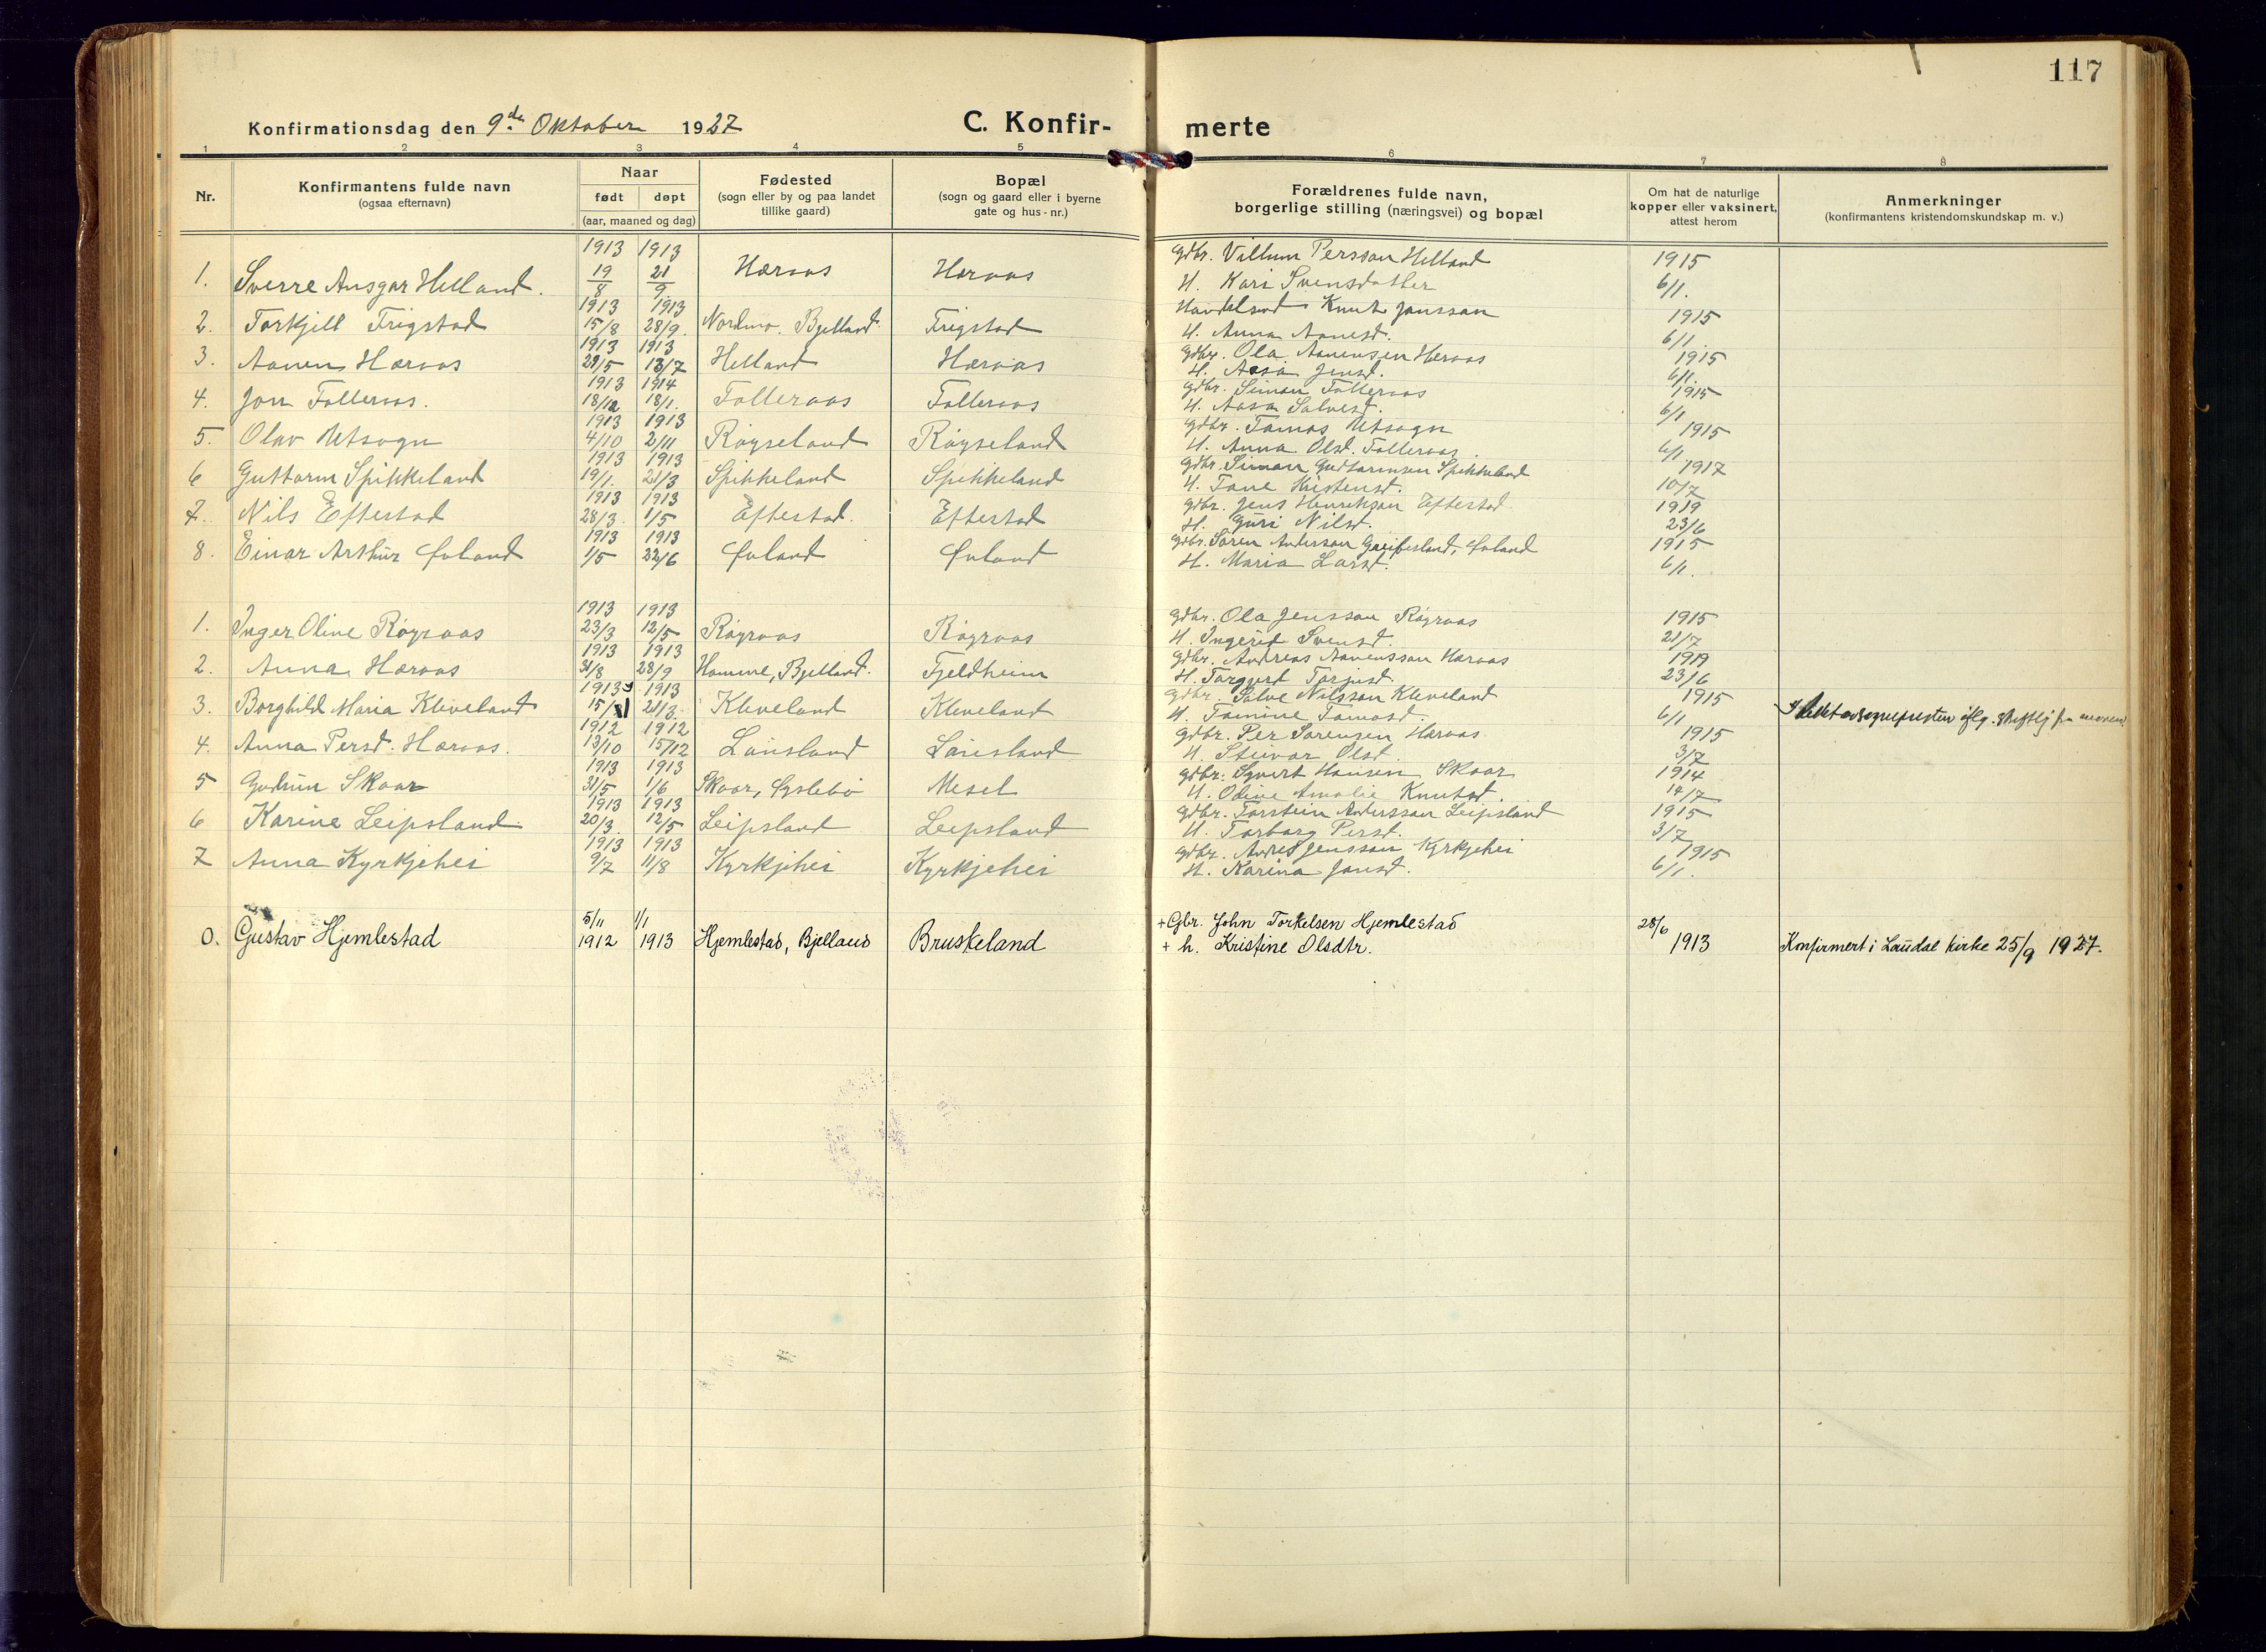 117
Konfirmationsdag den 9de Oktober 1927 C. Konfir- merte
1 2 3 4 5 6 7 8
Nr. Konfirmantens fulde navn (ogsaa efternavn) Naar født døpt (aar, maaned og dag) Fødested (sogn eller by og paa landet tillike gaard) Bopæl (sogn og gaard eller i byerne gate og hus-nr.) Forældrenes fulde navn, borgerlige stilling (næringsvei) og bopæl Om hat de naturlige kopper eller vaksinert, attest herom Anmerkninger (konfirmantens kristendomskundskap m. v.)
1. Sverre Ansgar Helland. 1913 19/8 1913 21/9 Høraas Høraas gdbr. Villum Persson Helland H. Kari Svensdatter 1915 6/1.
2. Torkjell Trigstad 1913 15/8 1913 28/9. Nordmo. Bjelland. Trigstad Knut Jonsson H. Anna Aanesd. 1915 6/1.
3. Aanen Høraas 1913 29/5 1913 13/7 Helland Høraas gdbr. Ola Aanensen Høraas H. Aasa Jensd. 1915 6/1.
4. Jon Folleraas. 1913 18/12 1914 18/1. Folleraas Folleraas gdbr. Simon Folleraas H. Aasa Salvesd. 1915 6/1
5. Olav Utsogn 1913 4/10 1913 2/11 Røyseland Røyseland gdbr. Tomas Utsogn H. Anna Olsd. Folleraas. 1915 6/1
6 Guttorm Spikkeland 1913 19/1. 1913 21/3 Spikkeland Spikkeland gdbr. Simon Guttormsen Spikkeland H. Tone Kristensd. 1917 10/7
7. Nils Eftestad 1913 28/3. 1913 1/5 Eftestad. Eftestad gdbr. Jens Henriksson Eftestad H. Guri Nilsd. 1919 23/6
8. Einar Arthur Øvland 1913 1/5 1913 22/6 Øvland Øvland gdbr. Søren Anderson Greibesland, Øvland H. Maria Larsd. 1915 6/1.
1. Inger Oline Røyraas 1913 23/3 1913 12/5 Røyraas Røyraas gdbr. Ola Jensson Røyraas H. Ingerid Svensd. 1915 21/7
2. Anna Høraas 1913 31/8 1913 28/9 Homme, Bjelland. Fjeldheim gdbr. Andreas Aanensson Høraas H. Torgjerd Torjusd. 1919 23/6
3. Borghild Maria Kleveland 1913 15/ 1913 21/3. Kleveland Kleveland gdbr. Salve Nilsson Kleveland H. Tomine Tomasd. 1915 6/1
4. Anna Persd. Høraas. 1912 13/10 1912 15/12 Lauvsland Lauvsland gdbr. Per Sørensen Høraas H. Steinvor Olsd. 1915 3/7
5 Gudrun Skaar 1913 31/5 1913 1/6 Skaar, Øyslebø Mesel gdbr. Syvert Hansen Skaar H. Odine Amalie Knutsd. 1914 14/7
6 Karine Leipsland. 1913 20/3. 1913 12/5 Leipsland Leipsland gdbr. Torstein Andersson Leipsland H. Torborg Persd. 1915 3/7
7 Anna Kyrkjehei 1913 9/7 1913 11/8 Kyrkjehei Kyrkjehei gdbr. Andres Jensson Kyrkjehei H. Karina Jonsd. 1915 6/1.
0. Gustav Hjemlestad 5/11 1912 1/1 1913 Hjemlestad, Bjelland Bruskeland + Gbr. John Torkelsen Hjemlestad + h. Kristine Olsdtr. 28/6 1913 Konfirmert i Laudal kirke 25/9 1927.